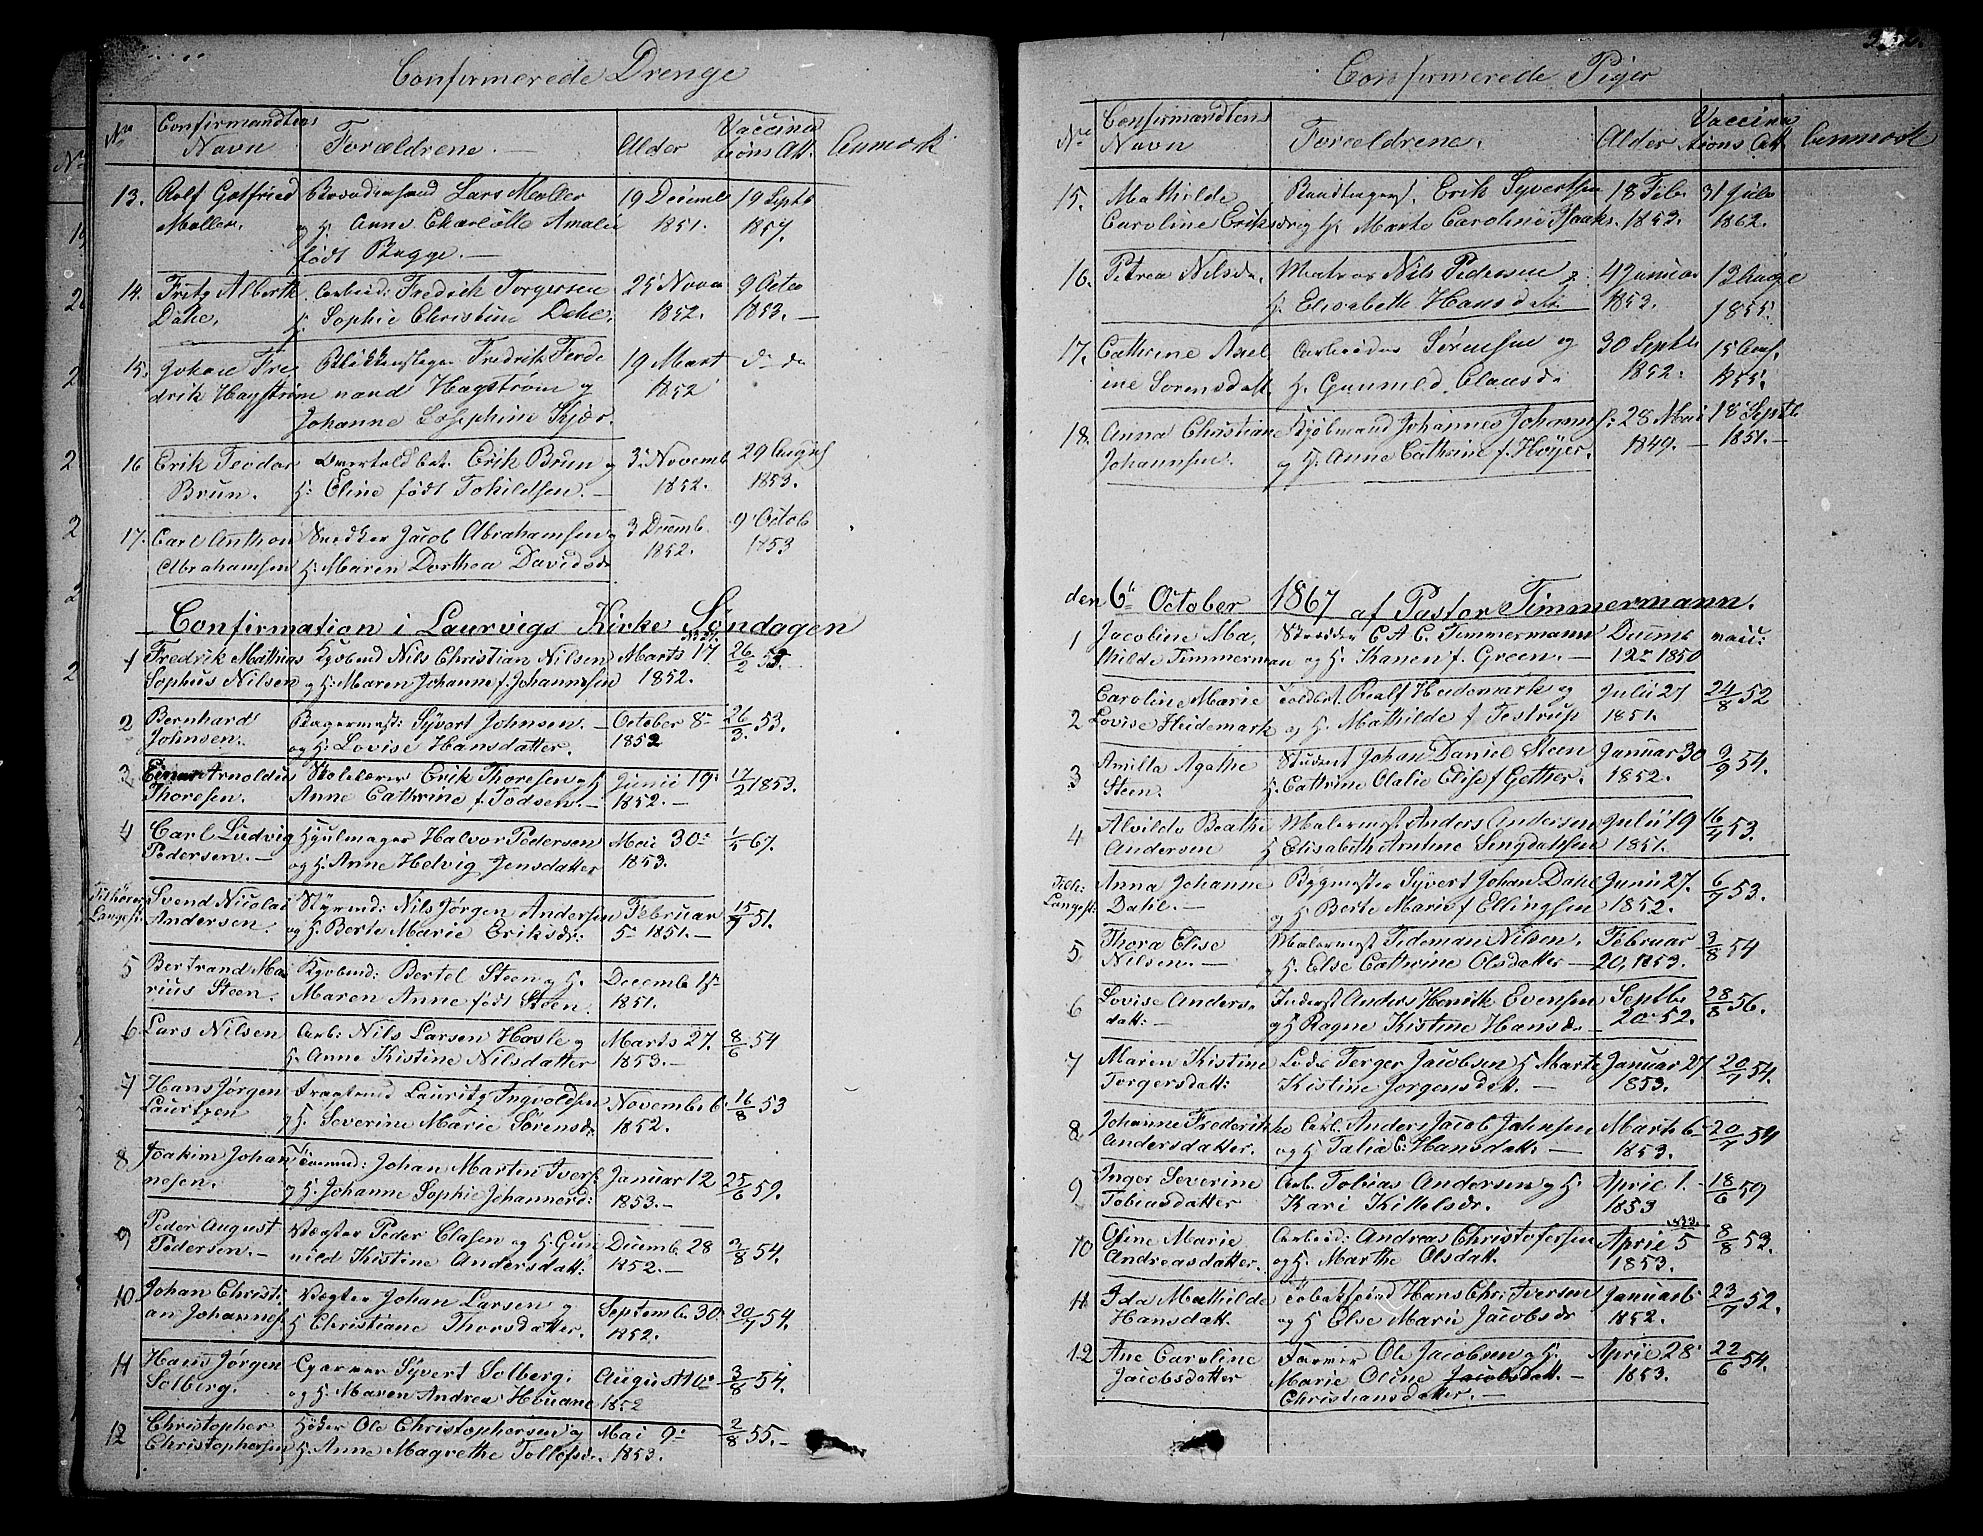 Confirmerede Drenge
No Confirmandtens Navn Forældrene. Alder Vaccina tions Att. Anmærk
13. Rolf Gotfried Lars Møller 19 Decemb 19 Septb
Møller. og H. Anne Charlotte Amalie 1851. 1857.
født Bugge.
14. Fritz Alberth Arbeid: Fredrik Torgersen 25 Novm 9 Octo
Dahl. H. Sophie Christine Dahl. 1852. 1853.
15. Johan Fre Blikkenslager Fredrik Ferde 19 Mart do do
drik Hagstrøm nand Hagstrøm og 1852
Johanne Josephine Kjær.
16 Erik Teodor Overtoldbet. Erik Brun og 3 Novemb 29 August
Brun. H: Eline født Tokildsen. 1852. 1853.
17. Carl Anthon Snedker Jacob Abrahamsen og 3 Decemb. 9 Octob
Abrahamsen H. Maren Dorthea Davidsd. 1852. 1853
Confirmation i Laurvigs Kirke Søndagen
1 Fredrik Mathias Kjøbmd Nils Christian Nilsen Marts 17 26/2 53.
Sophus Nilsen og H. Maren Johanne f. Johannesen 1852.
2 Bernhard Bagermest: Syvert Johnsen. October 8 26/3 53.
Johnsen. og H. Lovise Hansdatter. 1852
3 Einar Arnoldus Skolelærer Erik Thoresen og H Junii 19. 17/2 1853.
Thoresen. Anne Cathrine f. Todsen. 1852.
4 Carl Ludvig Hjulmager Halvor Pedersen Mai 30 1/5 67.
Pedersen. og H. Anne Helvig Jensdatter 1853.
Tilhører Svend Nicolai Styrmd: Nils Jørgen Andersen Februar 15/7 51.
Langest. Andersen. og H. Berte Marie Eriksdr: 5 1851.
5 Bertrand Ma Kjøbmd: Bertel Steen og H. Decemb 15
rius Steen. Maren Anne født Steen 1851.
6 Lars Nilsen Arb: Nils Larsen Hasle og Marts 27. 8/6 54
H. Anne Kistine Nilsdatter 1853.
7 Hans Jørgen Lauritz Ingvoldsen Novemb 6. 16/8 53
Lauritzen og H. Severine Marie Sørensd 1852.
8 Joakim Johan Johan Martin Ivers Januar 12 25/6 59.
nesen. og H. Johanne Sophie Johannesd: 1853.
9 Peder August Vægter Peder Clasen og H. Gun Decemb 28 3/8 54.
Pedersen. nild Kistine Andersdatt: 1852.
10 Johan Christi Vægter Johan Larsen og Septemb 30. 20/7 54.
an Johannes. H Christiane Thorsdatter. 1852.
11 Hans Jørgen Syvert Solberg. August 10 3/8 54.
Solberg. og H. Maren Andrea 1852
12 Christopher Ole Christophersen og Mai 9 2/8 55.
Christophersen H. Anne Magrethe Tollefsd. 1853.
Confirmerede Piger
No Confirmandtens Navn Forældrene. Alder Vaccina tions Att Anmærk
15. Mathilde Erik Syvertsen 18 Febr. 31 Julo
Caroline Eriks og H. Marte Caroline Isaaks. 1853. 1862.
16. Petrea Nilsd. Matros Nils Pedersen og 4 Januar 12 Auge
H. Elisabeth Hansdatt 1853. 1855.
17. Cathrine Axel Arbeider Sørensen og 30 Septb
ine Sørensdatt. H. Gunnild Claasd. 1852. 1855.
18. Anna Christiane Kjøbmand Johannes Johanns 28 Mai 18 Septb.
Johannsen. og H. Anne Cathrine f. Høyer. 1849. 1851.
den 6 October 1867 af Pastor Timmermann.
1 Jacoline Ma. C. A. C. Timmermann Decemb
thilde Timmerman og H. Karen f. Green. 12 1850
2 Caroline Marie Toldbet. Rolf Heidemark og Julii 27 24/8 52
Lovise Heidemark og H. Mathilde f Testrup 1851.
3 Amilla Agathe Student Johan Daniel Steen Januar 30 9/9 54.
Steen. H. Cathrine Olalie Elise f Gether. 1852.
4 Alvilde Beathe Malermest. Anders Andersen Julii 19 16/7 53.
Andersen H Elisabeth Amtine 1851.
Tilh: Anna Johanne Bygmester Syvert Johan Dahl Junii 27. 6/7 53.
Langest: Dahl. og H Berte Marie f Ellingsen 1852.
5 Thora Elise Malermest Tideman Nilsen. Februar 3/8 54
Nilsen. og H. Else Cathrine Olsdatter 20, 1853.
6 Lovise Anders. Inderst Anders Henrik Evensen Septb. 28/8 56.
datt: og H Ragne Kistine Hansd. 20 52.
7 Maren Kistine Lods Terger Jacobsen H Marte Januar 27 20/7 54.
Torgersdatt: Kistine Jørgensdatt. 1853.
8 Johanne Frederikke Arb. Anders Jacob Johnsen Marts 6 20/7 54
Andersdatter. og H Talia C. Hansdatt: 1853.
9 Inger Severine Arb. Tobias Andersen og H. April 1. 18/6 59
Tobiasdatter Kari Kittelsdr. 1853
10 Ofine Marie Arbeid: Andreas Christofersen April 5 8/8 53.
Andreasdatter. og H. Marthe Olsdatt. 1853.
11 Ida Mathilde Hans Chr. Iversen Januar 6 23/7 52.
Hansdatt. og H Else Marie Jacobsdr 1852.
12 Ane Caroline Ole Jacobsen og H. April 28 22/6 54.
Jacobsdatter Marie Oline Jacobsdatt. 1853.
Christiansdatter.